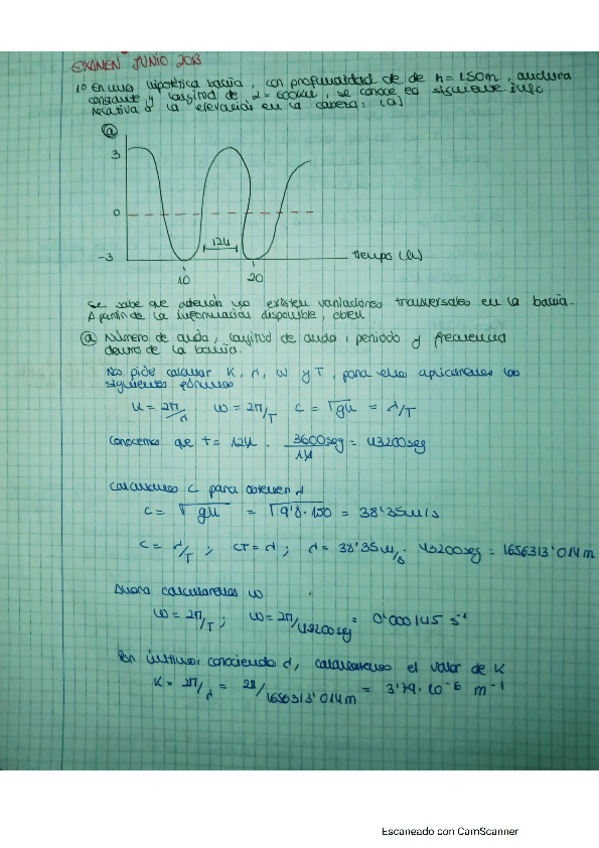 EXAMEN JUNIO 2013
1º En una hipotética bahía, con profundidad de de h = 150m, anchura
constante y longitud de L = 600km, se conoce la siguiente info
relativa a la elevación en la cabeza: (a)
a
3
0
-3
12h
10
20
tiempo (h)
Se sabe que además no existen variaciones transversales en la bahía.
A partir de la información disponible, obten
a Número de onda, longitud de onda, periodo y frecuencia
dentro de la bahía.
Nos pide calcular K, λ, W y T, para ello aplicaremos las
siguientes fórmulas
K = 2π/λ W = 2π/T C = √gh = λ/T
Conocemos que t = 12h · 3600seg/1h = 43200seg
Calculamos C para obtener λ
C = √gh = √9'8·150 = 38'35m/s
C = λ/T ; CT = λ ; λ = 38'35 m/s · 43200seg = 1656313'014m
Ahora calcularemos W
W = 2π/T ; W = 2π/43200seg = 0'000145 s⁻¹
Por último, conociendo λ, calcularemos el valor de K
K = 2π/λ = 2π/1656313'014m = 3'79·10⁻⁶ m⁻¹
Escaneado con CamScanner